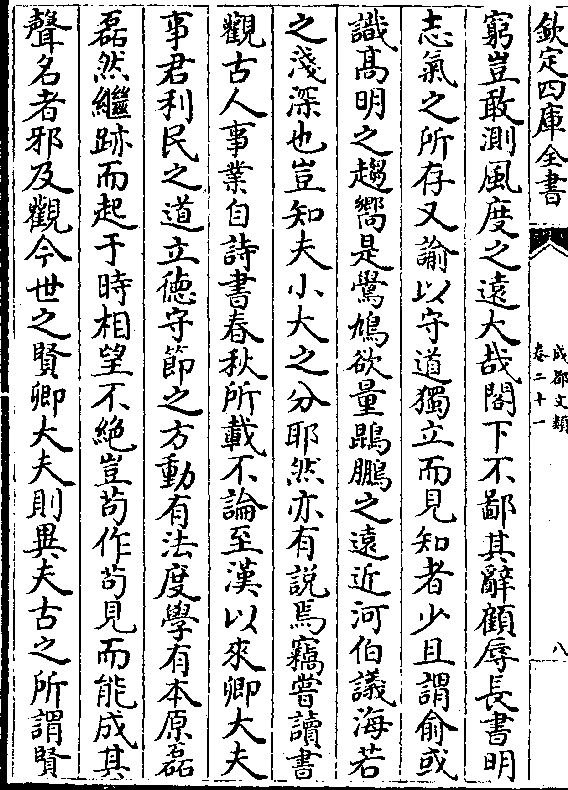 欽定四庫全書
成都文類
卷二十一
八
窮豈敢測風度之遠大哉閤下不鄙其辭顧辱長書明
志氣之所存又諭以守道獨立而見知者少且謂俞或
識髙明之趨嚮是鷽鳩欲量鵾鵬之遠近河伯議海若
之淺深也豈知夫小大之分耶然亦有説焉竊嘗讀書
觀古人事業自詩書春秋所載不論至漢以來卿大夫
事君利民之道立德守節之方動有法度學有本原磊
磊然繼跡而起于時相望不絶豈苟作苟見而能成其
聲名者邪及觀今世之賢卿大夫則異夫古之所謂賢